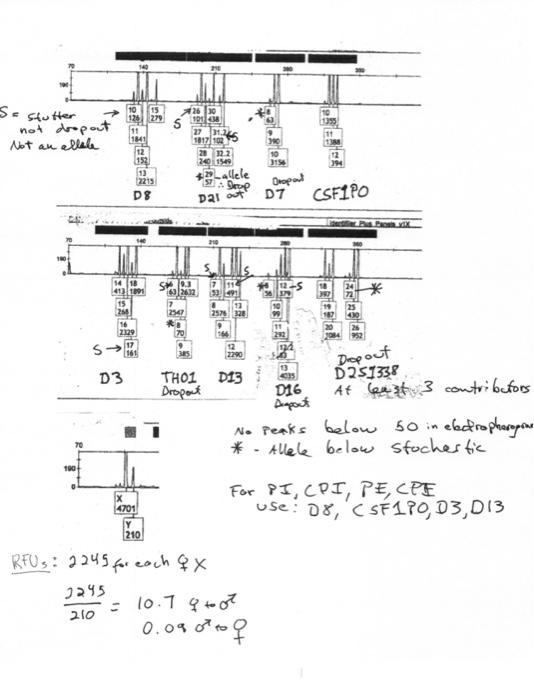 70 140 210 280 350
190
0
S = stutter
not dropout
Not an allele
10 126
11 1841
12 152
13 2215
15 279
D8
S
26 101
27 1817
28 240
*29 57
30 438
31.2 102
S
32.2 1549
allele
∴ Drop out
D21
*8 63
9 390
10 3156
Dropout
D7
10 1355
11 1388
12 394
CSF1PO
Identifiler Plus Panels v1X
70 140 210 280 350
190
0
14 413
15 268
16 2329
S → 17 161
18 1891
D3
S
6 63
7 2547
*8 70
9 385
9.3 2632
TH01
Dropout
7 53
8 2576
9 166
11 491
S
12 2290
13 328
D13
*8 56
10 99
11 292
12 379
S
13 4035
D16
Dropout
18 397
19 187
20 1084
24 72
*
25 430
26 952
Dropout
D2S1338
At least 3 contributors
70
190
0
X 4701
Y 210
No peaks below 50 in electropherogram
* - Allele below stochastic
For PI, CPI, PE, CPE
use: D8, CSF1PO, D3, D13
RFUs: 2245 for each ♀ X
2245
210
= 10.7 ♀ to ♂
0.09 ♂ to ♀